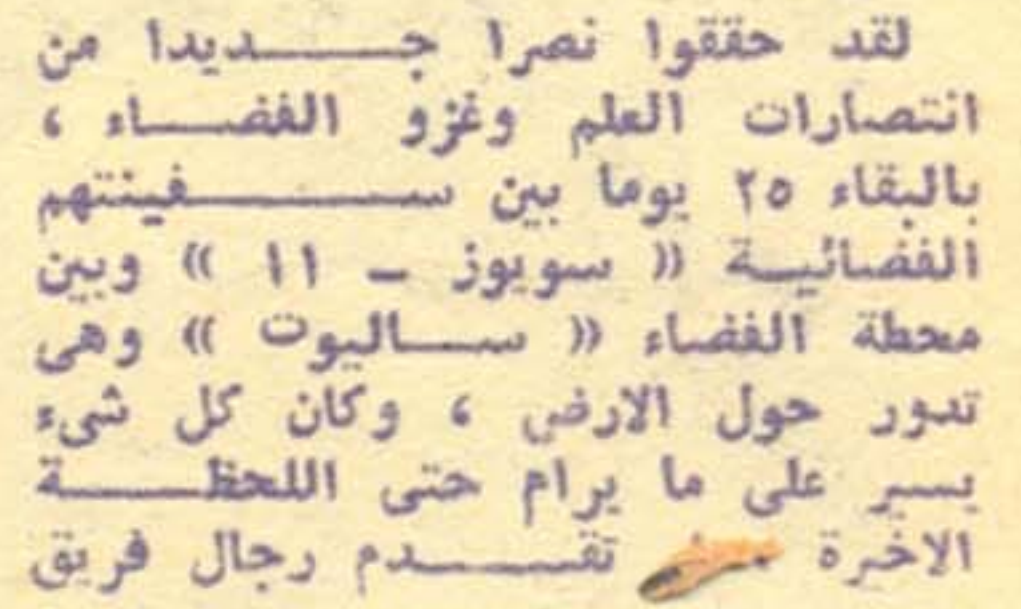 لقد حققوا نصرا جديدا من
انتصارات العلم وغزو الفضاء ،
بالبقاء ٢٥ يوما بين سفينتهم
الفضائية « سويوز - ١١ » وبين
محطة الفضاء « ساليوت » وهى
تدور حول الارض ، وكان كل شىء
يسير على ما يرام حتى اللحظة
الاخيرة تقدم رجال فريق